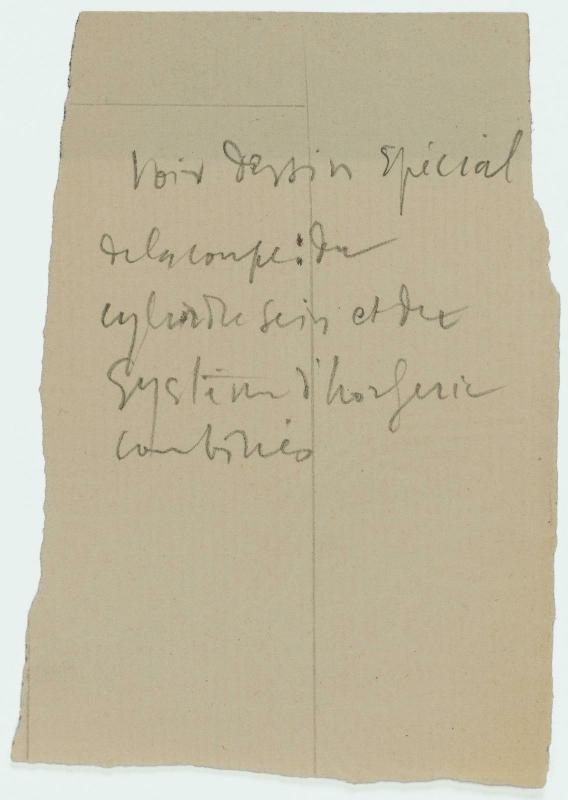 Voir dessin spécial
de la coupe: du
cylindre sein et des
système d'horlogerie
combinés